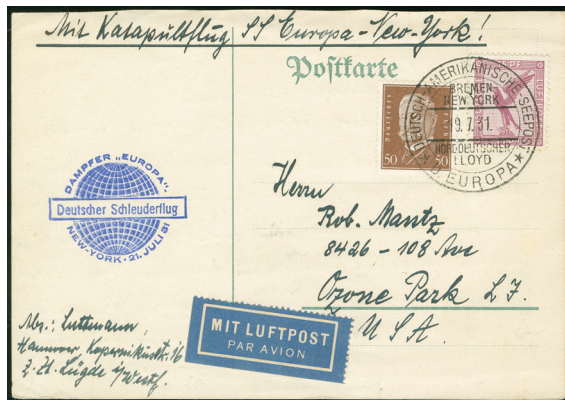 Mit Katapultflug SS Europa - New-York!
Postkarte
DEUTSCHES REICH
50 50
LUFTPOST
DEUTSCH-AMERIKANISCHE-SEEPOST
BREMEN
NEW YORK
19.7.31.
NORDDEUTSCHER
LLOYD
★ EUROPA ★
DAMPFER „EUROPA".
Deutscher Schleuderflug
NEW-YORK · 21. JULI 31
Herrn
Rob. Mantz
8426 - 108 Ave
Ozone Park L.I.
U S A.
MIT LUFTPOST
PAR AVION
Abs.: Luttmann,
Hannover, Kopernikusstr. 16
z. Zt. Lügde i/Westf.